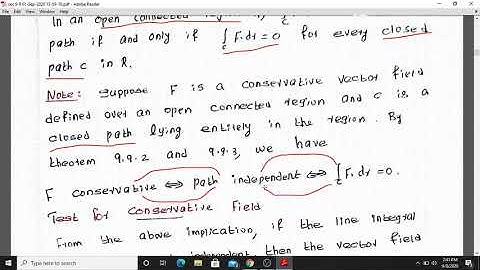 sec 9.9 01-Sep-2020 13-59-10.pdf - Adobe Reader
In an open connected region
path if and only if ∫c F. dr = 0 for every closed
path c in R.
Note: Suppose F is a conservative vector field
defined over an open connected region and c is a
closed path lying entirely in the region. By
theorem 9.9.2 and 9.9.3, we have
F conservative ⇔ path independent ⇔ ∫c F. dr = 0.
Test for Conservative Field
From the above implication, if the line integral
independent then the vector field
Type here to search